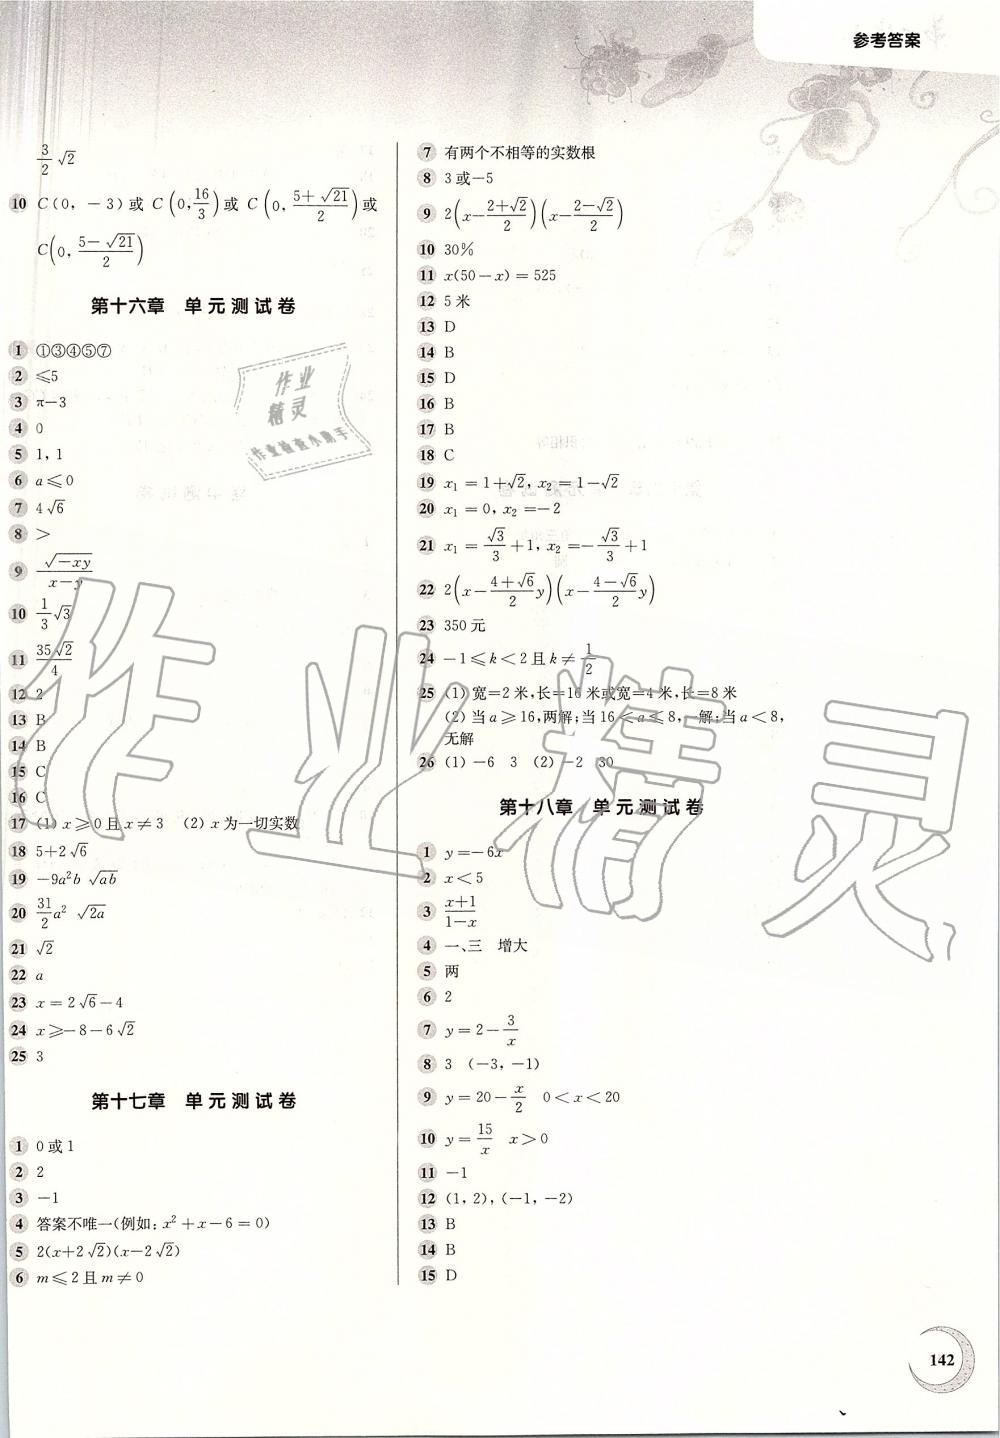 参考答案
3/2 √2
10 C(0，－3)或 C(0,16/3)或 C(0,(5+√21)/2)或
C(0,(5－√21)/2)
第十六章 单元测试卷
1 ①③④⑤⑦
2 ≤5
3 π－3
4 0
5 1, 1
6 a≤0
7 4√6
8 >
9 √(－xy)/(x－y)
10 1/3 √3
11 35√2/4
12 2
13 B
14 B
15 C
16 C
17 (1) x≥0且x≠3 (2) x为一切实数
18 5+2√6
19 －9a²b √(ab)
20 31/2 a² √(2a)
21 √2
22 a
23 x=2√6－4
24 x≥－8－6√2
25 3
第十七章 单元测试卷
1 0或1
2 2
3 －1
4 答案不唯一(例如: x²+x－6=0)
5 2(x+2√2)(x－2√2)
6 m≤2且m≠0
7 有两个不相等的实数根
8 3或－5
9 2(x－(2+√2)/2)(x－(2－√2)/2)
10 30%
11 x(50－x)=525
12 5米
13 D
14 B
15 D
16 B
17 B
18 C
19 x₁=1+√2, x₂=1－√2
20 x₁=0, x₂=－2
21 x₁=√3/3+1, x₂=－√3/3+1
22 2(x－(4+√6)/2 y)(x－(4－√6)/2 y)
23 350元
24 －1≤k<2且k≠1/2
25 (1) 宽=2米,长=16米或宽=4米,长=8米
(2) 当a≥16,两解;当16<a≤8,一解;当a<8,
无解
26 (1) －6 3 (2) －2 30
第十八章 单元测试卷
1 y=－6x
2 x<5
3 (x+1)/(1－x)
4 一、三 增大
5 两
6 2
7 y=2－3/x
8 3 (－3, －1)
9 y=20－x/2 0<x<20
10 y=15/x x>0
11 －1
12 (1, 2), (－1, －2)
13 B
14 B
15 D
142
作业
精灵
作业检查小助手
作业精灵